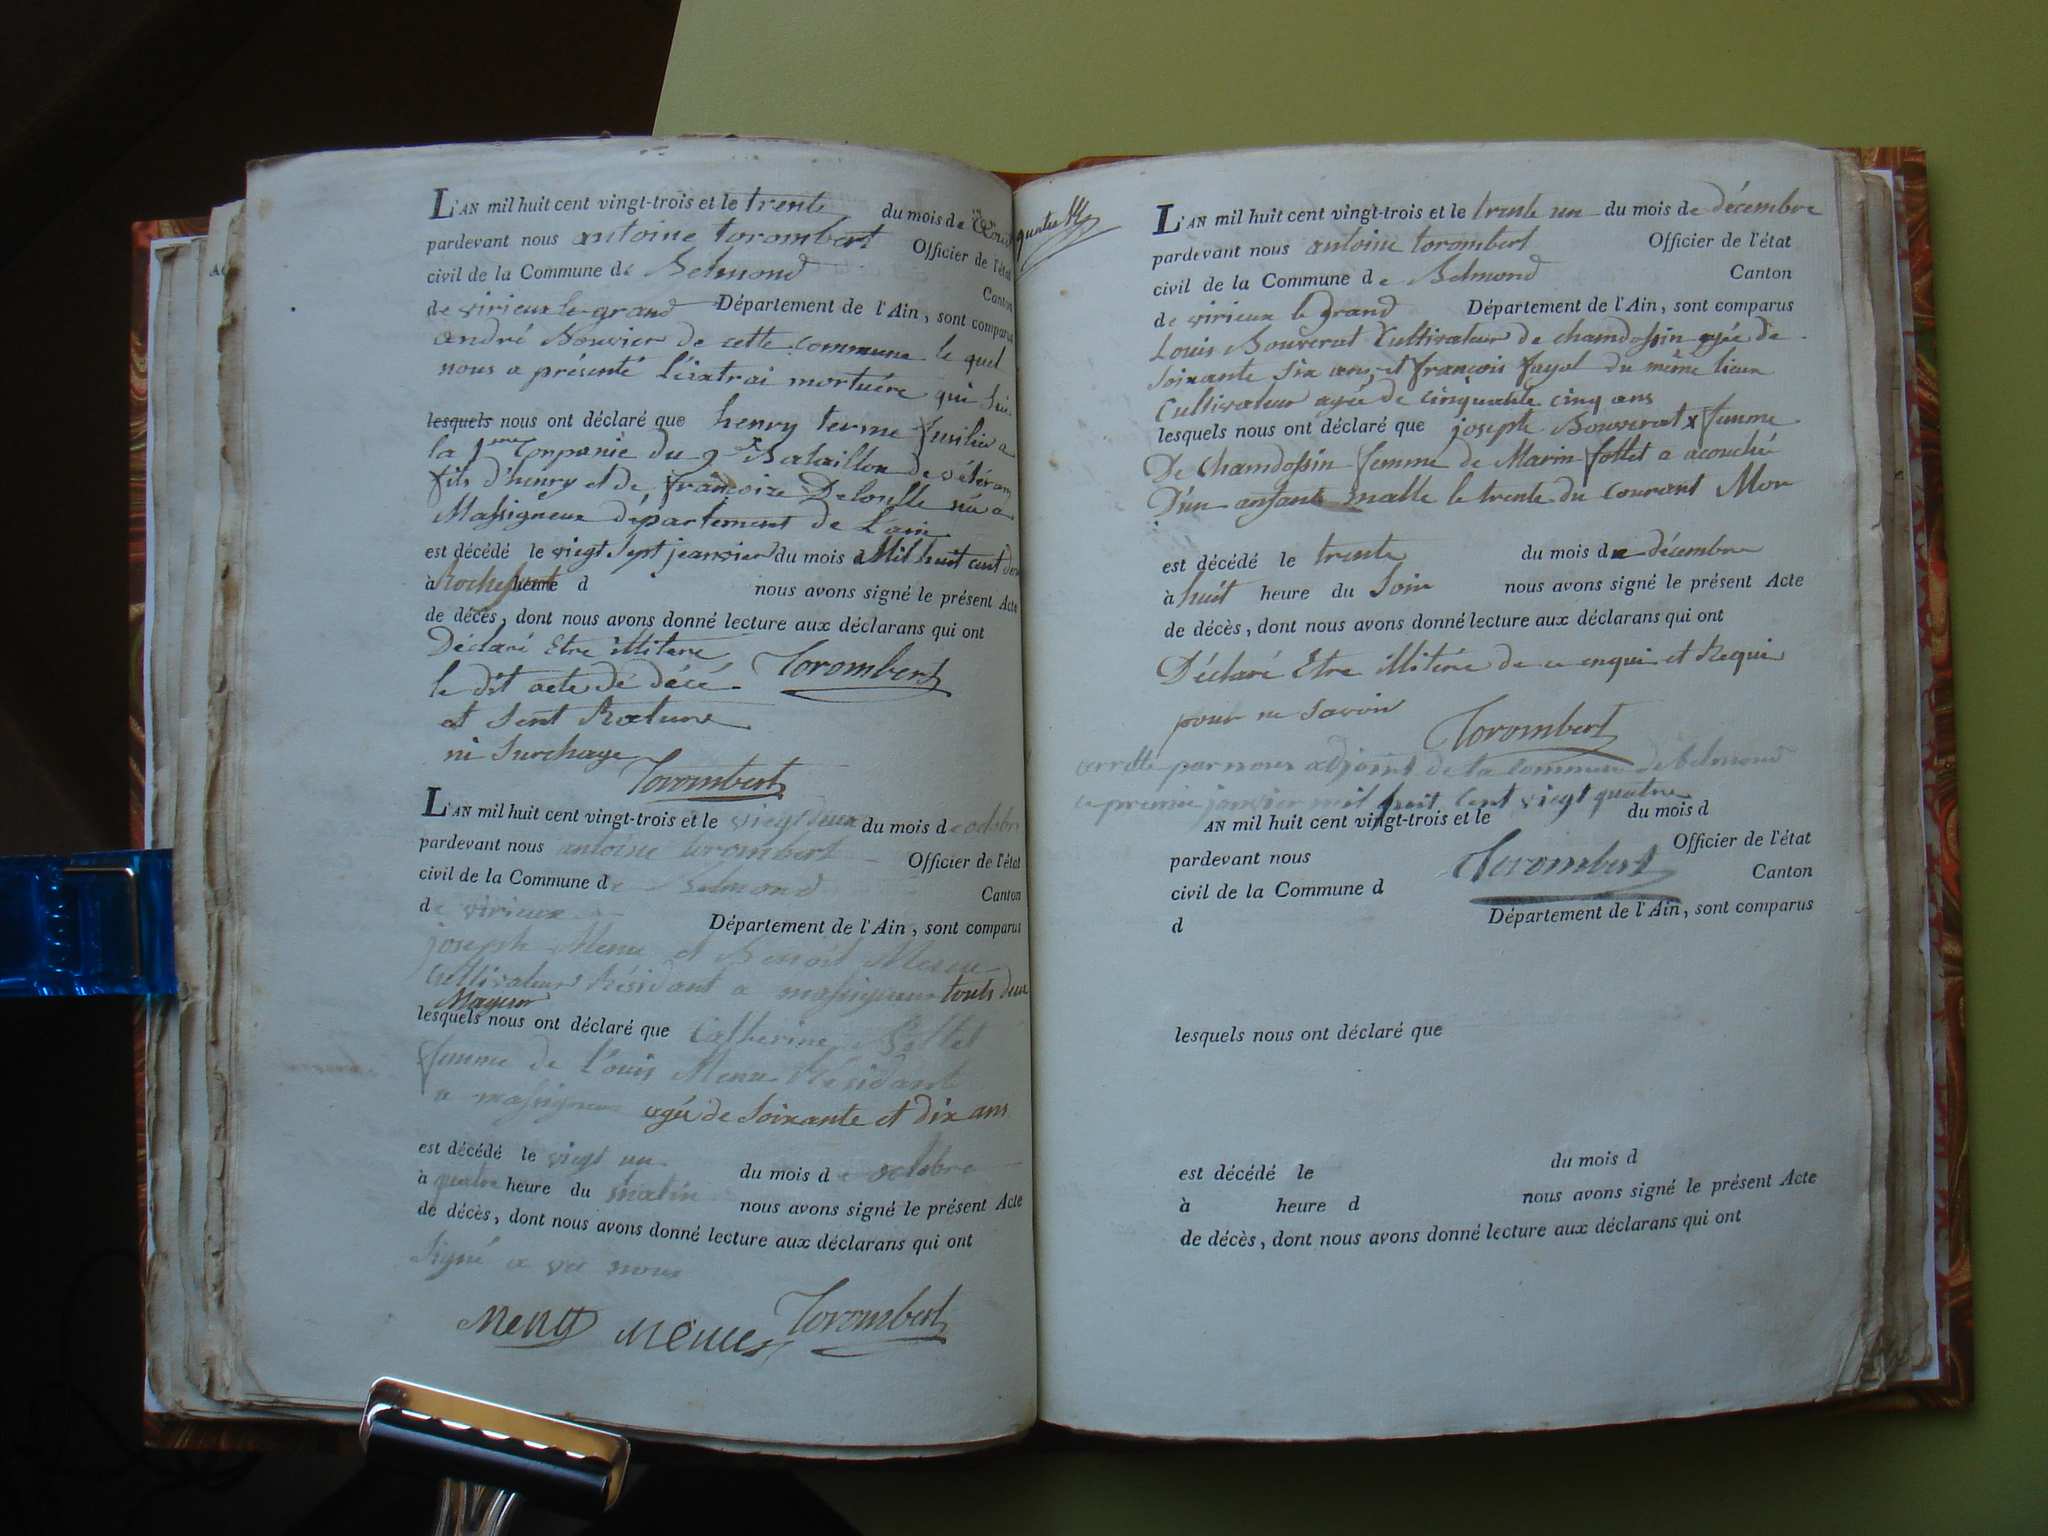 L'AN mil huit cent vingt-trois et le trente du mois de
pardevant nous antoine torombert Officier de l'état
civil de la Commune de Belmond Canton
de virieux le grand Département de l'Ain, sont comparus
andré Bouvier de cette commune le quel
nous a présenté L'exatrai mortuére qui Sui
lesquels nous ont déclaré que henry terme fusilier a
la 1ere Compagnie du Bataillon de vétérans
fils d'henry et de françoise née a
Massigneux département de L'ain
est décédé le viegt Sept jeanvier du mois d Mil huit cent
à Rochefort heure d nous avons signé le présent Acte
de décès, dont nous avons donné lecture aux déclarans qui ont
Déclaré Etre illitere
le dit acte de décé Torombert
et Sent Rature
ni Surchage
Torombert
L'AN mil huit cent vingt-trois et le viegt deux du mois de octobre
pardevant nous antoine torombert Officier de l'état
civil de la Commune de Belmond Canton
de virieux Département de l'Ain, sont comparus
joseph Menu et Benoit Menu
Cultivateur Résidant a massigneux touts deux
Mageur
lesquels nous ont déclaré que Catherine
femme de Louis Menu Résidante
a massigneux agée de Soixante et dix ans
est décédé le viegt un du mois de octobre
à quatre heure du matin nous avons signé le présent Acte
de décès, dont nous avons donné lecture aux déclarans qui ont
Signé a vec nous
Menu Torombert
L'AN mil huit cent vingt-trois et le trente un du mois de décembre
pardevant nous antoine torombert Officier de l'état
civil de la Commune de Belmond Canton
de virieux le grand Département de l'Ain, sont comparus
Louis Bouverat Cultivateur de chamdossin agée de
Soixante Six ans et françois fayol du même lieux
Cultivateur agée de cinquante cinq ans
lesquels nous ont déclaré que joseph Bouverat x femme
De Chamdossin femme de Marin follet a acouché
D'un anfant malle le trente du courant Mor
est décédé le trente du mois de décembre
à huit heure du Soir nous avons signé le présent Acte
de décès, dont nous avons donné lecture aux déclarans qui ont
Déclaré Etre illitéré de ce enqui et Requi
pour ne Savoir
Torombert
arrette par nous adjoint de la commune de belmond
ce premier janvier mil huit cent viegt quatre
AN mil huit cent vingt-trois et le du mois d
pardevant nous Officier de l'état
Torombert
civil de la Commune d Canton
d Département de l'Ain, sont comparus
lesquels nous ont déclaré que
est décédé le du mois d
à heure d nous avons signé le présent Acte
de décès, dont nous avons donné lecture aux déclarans qui ont